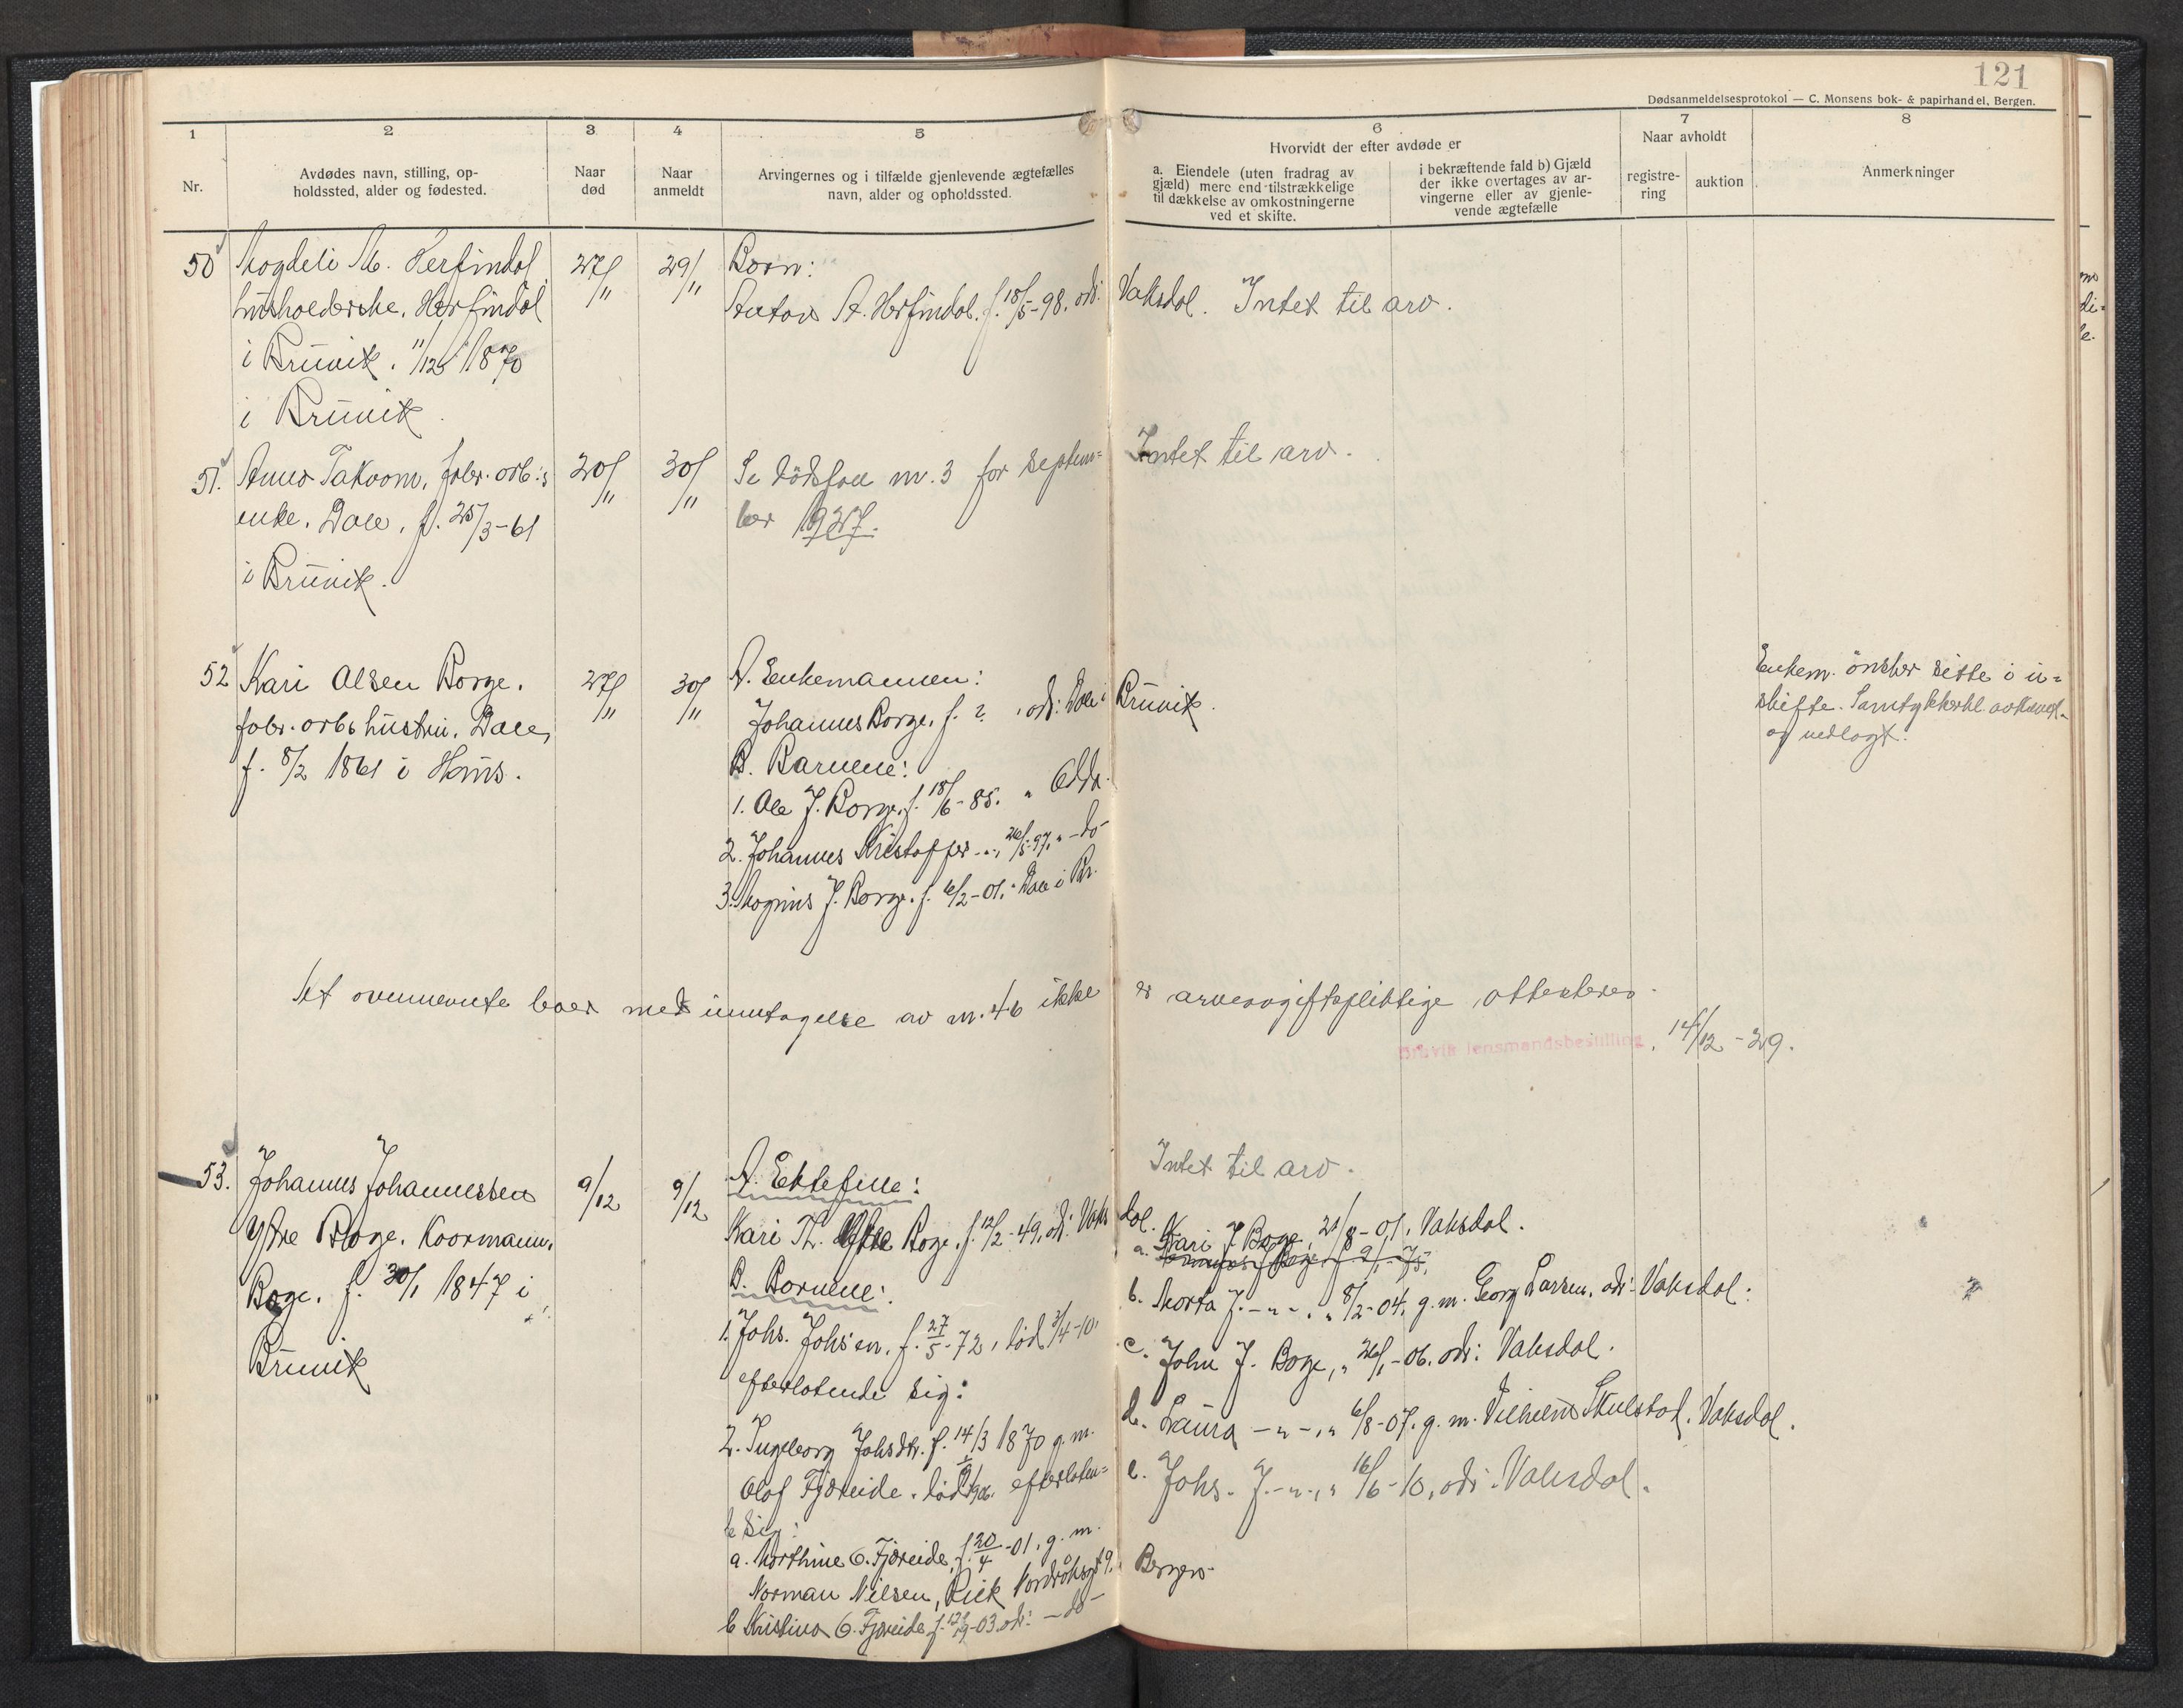 121
Dødsanmeldelsesprotokol — C. Monsens bok- & papirhandel, Bergen.
1 2 3 4 5 6 7 8
Nr.
Avdødes navn, stilling, op-
holdssted, alder og fødested.
Naar
død
Naar
anmeldt
Arvingernes og i tilfælde gjenlevende ægtefælles
navn, alder og opholdssted.
Hvorvidt der efter avdøde er
a. Eiendele (uten fradrag av
gjæld) mere end tilstrækkelige
til dækkelse av omkostningerne
ved et skifte.
i bekræftende fald b) Gjæld
der ikke overtages av ar-
vingerne eller av gjenle-
vende ægtefælle
Naar avholdt
registre-
ring
auktion
Anmerkninger
50 Magdeli M. Herfindal
husholderske. Herfindal
i Bruvik. 11/12 1870
i Bruvik.
27/11
29/11
Born:
Anton A. Herfindal. f. 18/5-98. adr: Vaksdal. Intet til arv.
51. Anna Takvam, fabr. arb:s
enke. Dale. f. 25/3-61
i Bruvik.
20/11
30/11
Se dödsfall nr. 3 for Septem=
ber 1927.
Intet til arv.
52 Kari Olsen Borge.
fabr. arbs hustru. Dale,
f. 8/2 1861 i Hams.
27/11
30/11
A. Enkemannen:
Johannes Borge. f. ? , adr: Dale i Bruvik.
B. Barnene:
1. Ole J. Borge. f. 18/6-85. " Odda.
2. Johannes Kristoffer -"-, 26/5-97, " -do-
3. Magnus J. Borge. f. 6/2-01. " Dale i Br.
Enkem. önsker sitte i u=
skifte. Samtykkerkl. avkrævet
og vedlagt.
At ovennevnte boer med unntagelse av nr. 46 ikke er arveavgiftspliktige attesteres.
Bruvik lensmandsbestilling, 14/12-29.
53. Johannes Johannessen
Ystre Boge. Kaarmann.
Boge. f. 30/1 1847 i
Bruvik
9/12
9/12
A. Ektefelle:
Kari Th. Ystre Boge. f. 12/2-49. adr: Vaksdal.
B. Barnene:
1. Johs. Johs'en. f. 27/5-72, død 3/4-10,
efterlatende sig:
2. Ingeborg Johsdtr. f. 14/3 1870 g. m.
Olaf Fjæreide. død 1906. efterlaten=
de sig:
a. Marthine O. Fjæreide, f. 20/4-01. g. m.
Norman Nilsen, Rick Nordråksgt 9. Bergen.
b Kristina O. Fjæreide f. 12/9-03. adr: -do-
Intet til arv.
a. Kari J. Boge, 21/8-01. Vaksdal.
b. Marta J. -"-. " 8/2-04, g. m. Georg Larsen, adr: Vaksdal.
c. John J. Boge, " 26/1-06. adr: Vaksdal.
d. Laura -"-, " 6/8-07. g. m. Vilhelm Skulstad. Vaksdal.
e. Johs. J. -"-, " 16/6-10, adr: Vaksdal.